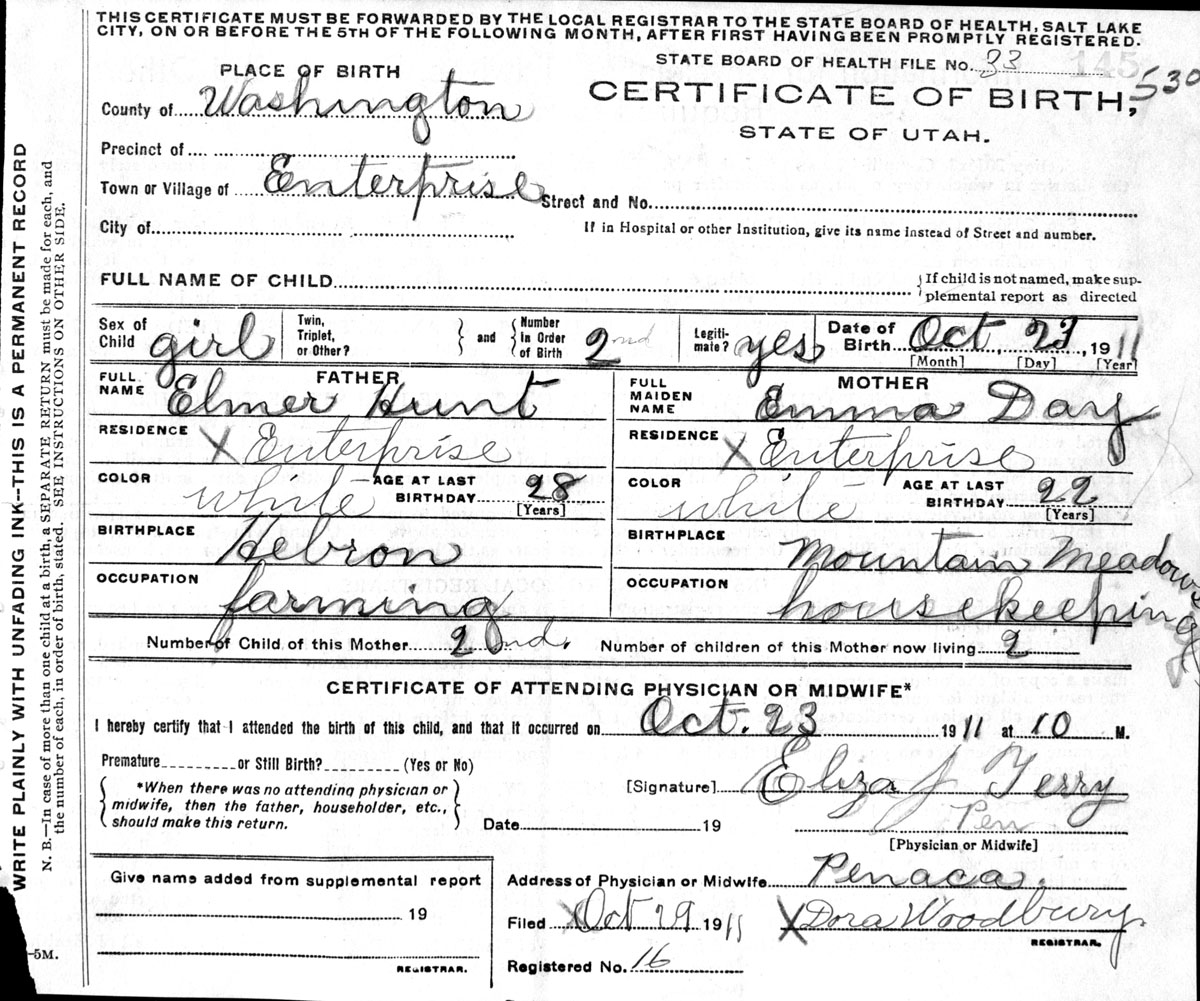 THIS CERTIFICATE MUST BE FORWARDED BY THE LOCAL REGISTRAR TO THE STATE BOARD OF HEALTH, SALT LAKE
CITY, ON OR BEFORE THE 5TH OF THE FOLLOWING MONTH, AFTER FIRST HAVING BEEN PROMPTLY REGISTERED.
STATE BOARD OF HEALTH FILE No. 33 145
530
PLACE OF BIRTH
CERTIFICATE OF BIRTH,
STATE OF UTAH.
County of Washington
Precinct of
Town or Village of Enterprise Street and No.
City of If in Hospital or other Institution, give its name instead of Street and number.
FULL NAME OF CHILD { If child is not named, make sup-
plemental report as directed
Sex of Child girl Twin, Triplet, or Other? } and { Number in Order of Birth 2nd Legiti-mate? yes Date of Birth Oct 23, 1911
[Month] [Day] [Year]
FATHER MOTHER
FULL NAME Elmer Hunt FULL MAIDEN NAME Emma Day
RESIDENCE X Enterprise RESIDENCE X Enterprise
COLOR white AGE AT LAST BIRTHDAY 28 [Years] COLOR white AGE AT LAST BIRTHDAY 22 [Years]
BIRTHPLACE Hebron BIRTHPLACE Mountain Meadows
OCCUPATION farming OCCUPATION housekeeping
Number of Child of this Mother 2nd. Number of children of this Mother now living 2
CERTIFICATE OF ATTENDING PHYSICIAN OR MIDWIFE*
I hereby certify that I attended the birth of this child, and that it occurred on Oct. 23 1911 at 10 M.
Premature or Still Birth? (Yes or No)
[Signature] Eliza J Terry
{ *When there was no attending physician or
midwife, then the father, householder, etc.,
should make this return. }
Date 19 Pen
[Physician or Midwife]
Give name added from supplemental report
19
REGISTRAR.
Address of Physician or Midwife Penaca.
Filed X Oct 29 1911 X Dora Woodbury
REGISTRAR.
Registered No. 16
WRITE PLAINLY WITH UNFADING INK--THIS IS A PERMANENT RECORD
N. B.—In case of more than one child at a birth, a SEPARATE RETURN must be made for each, and
the number of each, in order of birth, stated. SEE INSTRUCTIONS ON OTHER SIDE.
-5M.